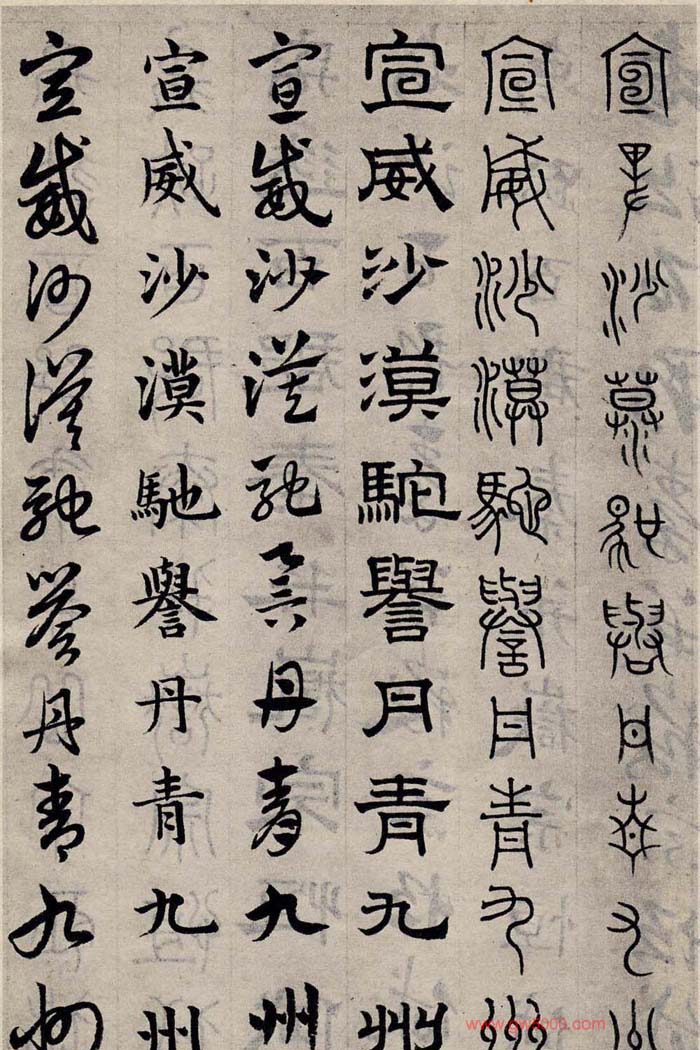 宣威沙漠馳譽丹青九州
宣威沙漠馳譽丹青九州
宣威沙漠駝譽丹青九州
宣威沙漠馳譽丹青九州
宣威沙漠馳譽丹青九州
宣威沙漠馳譽丹青九州